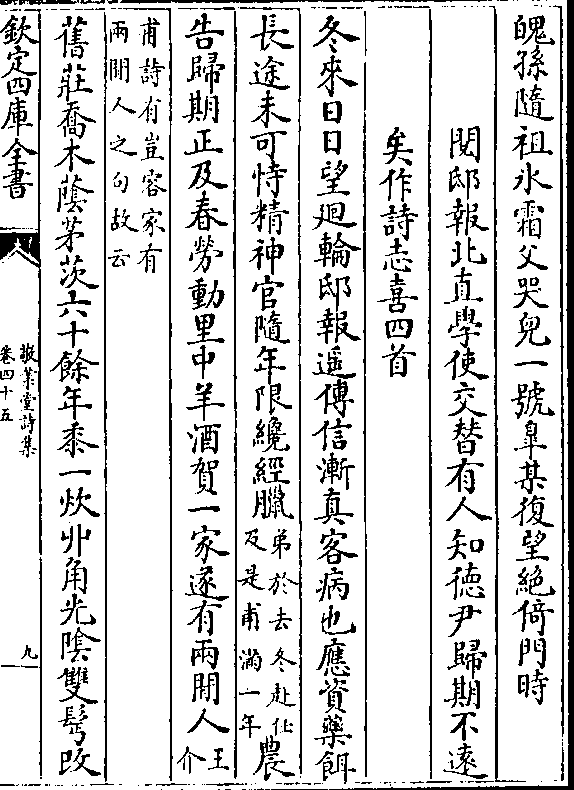 魄孫隨祖氷霜父哭兒一號臯某復望絶倚門時
閱邸報北直學使交替有人知徳尹歸期不逺
矣作詩志喜四首
冬來日日望廻輪邸報遥傳信漸真客病也應資藥餌
長途未可恃精神官隨年限纔經臘
弟於去冬赴任
及是甫滿一年
農
告歸期正及春勞動里中羊酒賀一家遂有兩閒人
王
介
甫詩有豈容家有
兩閒人之句故云
舊莊喬木蔭茅茨六十餘年黍一炊丱角光隂雙髩改
欽定四庫全書
敬業堂詩集
卷四十五
九